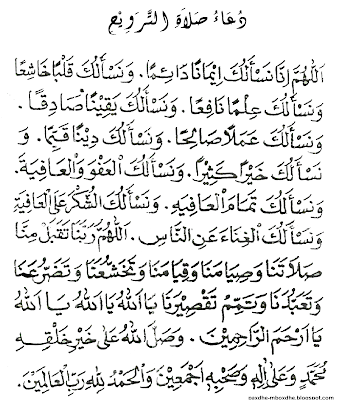 دُعَاءُ صَلَاةِ التَّرَوِيْحِ
اَللّٰهُمَّ إِنَّا نَسْأَلُكَ إِيْمَانًا دَائِمًا. وَنَسْأَلُكَ قَلْبًا خَاشِعًا
وَنَسْأَلُكَ عِلْمًا نَافِعًا. وَنَسْأَلُكَ يَقِيْنًا صَادِقًا.
وَنَسْأَلُكَ عَمَلًا صَالِحًا. وَنَسْأَلُكَ دِيْنًا قَيِّمًا. وَ
نَسْأَلُكَ خَيْرًا كَثِيْرًا. وَنَسْأَلُكَ الْعَفْوَ وَالْعَافِيَةَ.
وَنَسْأَلُكَ تَمَامَ الْعَافِيَةِ. وَنَسْأَلُكَ الشُّكْرَ عَلَى الْعَافِيَةِ
وَنَسْأَلُكَ الْغِنَاءَ عَنِ النَّاسِ. اَللّٰهُمَّ رَبَّنَا تَقَبَّلْ مِنَّا
صَلَاتَنَا وَصِيَامَنَا وَقِيَامَنَا وَتَخَشُّعَنَا وَتَضَرُّعَنَا
وَتَعَبُّدَنَا وَتَمِّمْ تَقْصِيْرَنَا يَا اَللهُ يَا اَللهُ يَا اَللهُ
يَا اَرْحَمَ الرَّاحِمِيْنَ. وَصَلَّ اللهُ عَلَى خَيْرِ خَلْقِهِ
مُحَمَّدٍ وَعَلَى اٰلِهِ وَصَحْبِهِ اَجْمَعِيْنَ وَالْحَمْدُ لِلّٰهِ رَبِّ الْعَالَمِيْنَ.
suxdhe-mboxdhe.blogspot.com